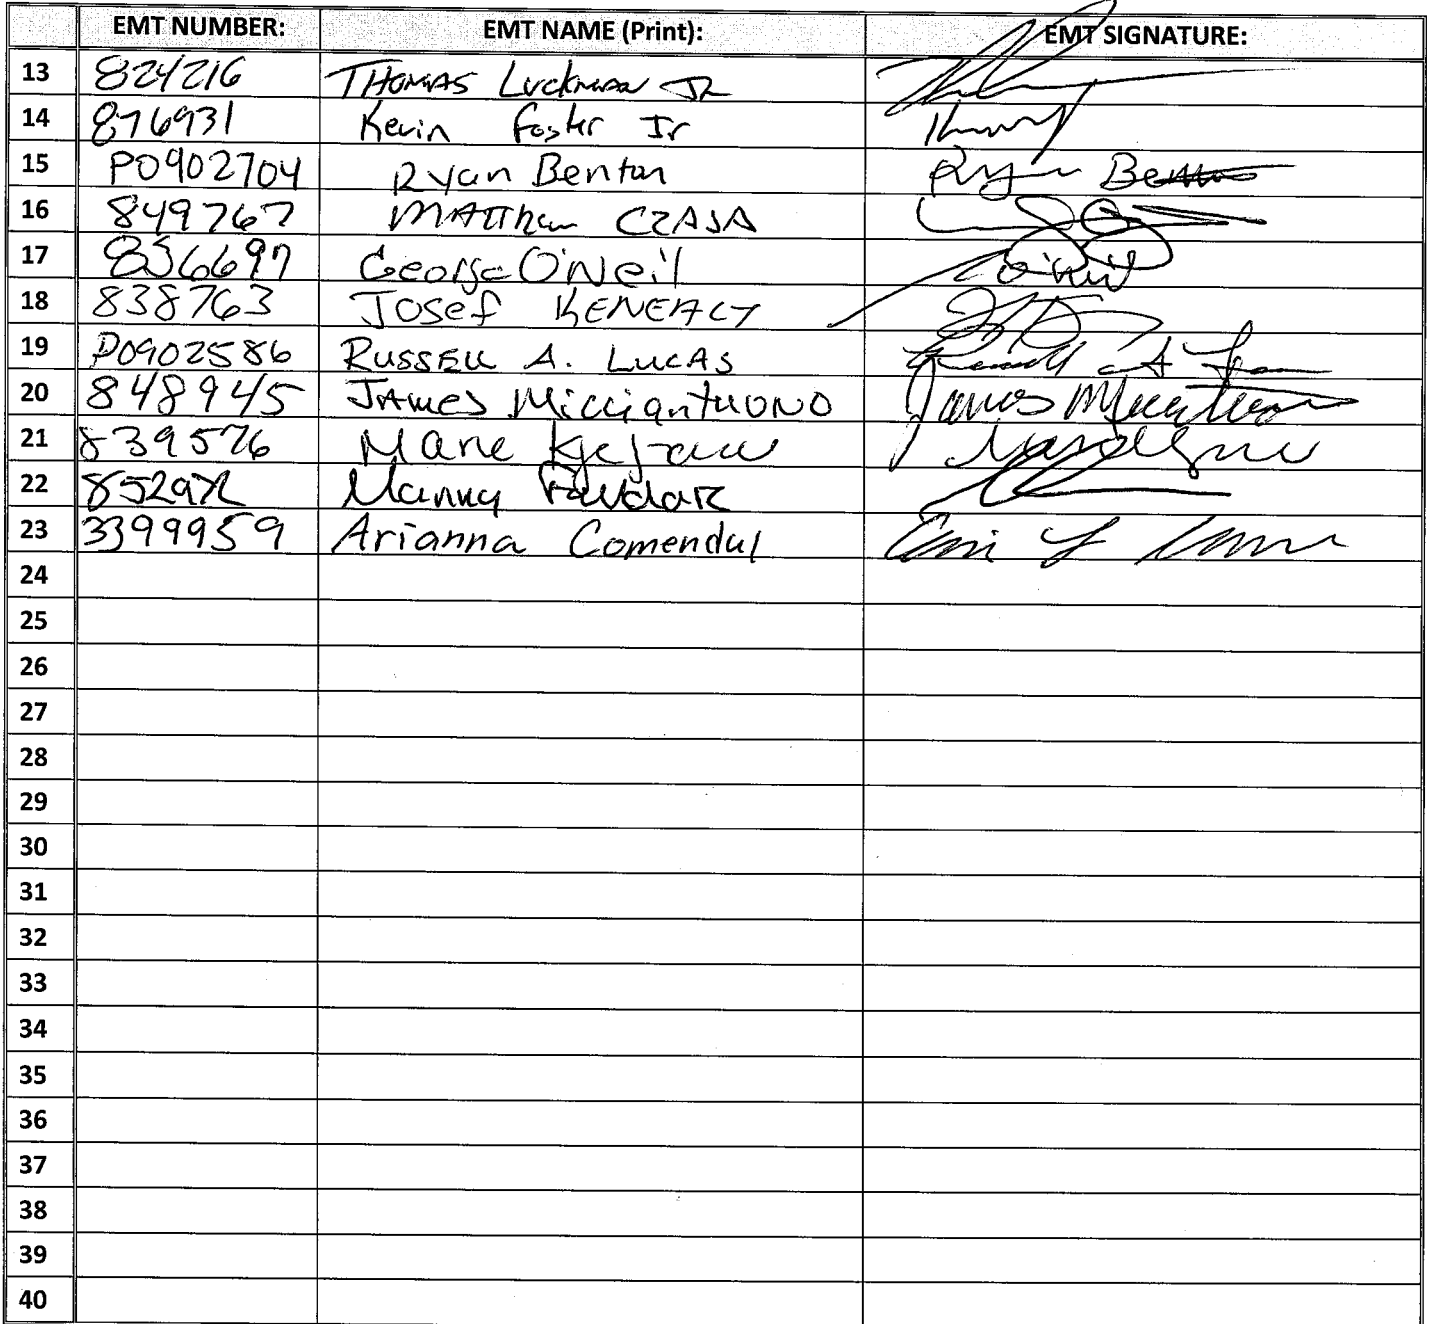 EMT NUMBER: EMT NAME (Print): EMT SIGNATURE:
13 824216 THOMAS Luckman JR
14 876931 Kevin Foster Jr
15 P0902704 Ryan Benton Ryan Benton
16 849767 MATThew CZAJA
17 856697 George O'Neil O'Neil
18 838763 Josef KENEALY
19 P0902586 RUSSELL A. LUCAS
20 848945 JAMES MicciantuONO James
21 839576
22 Manny
23 3399959 Arianna Comendul
24
25
26
27
28
29
30
31
32
33
34
35
36
37
38
39
40